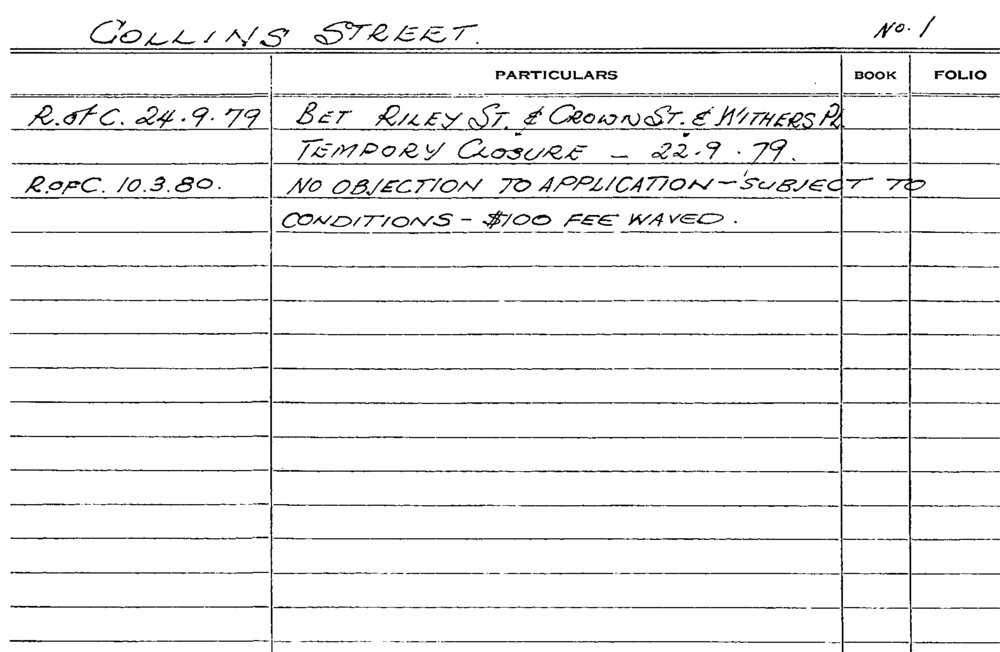 COLLINS STREET. No. 1
PARTICULARS BOOK FOLIO
R. of C. 24.9.79 BET RILEY ST. & CROWN ST. & WITHERS PL
TEMPORY CLOSURE – 22.9.79.
R. OF C. 10.3.80. NO OBJECTION TO APPLICATION – SUBJECT TO
CONDITIONS – $100 FEE WAVED.